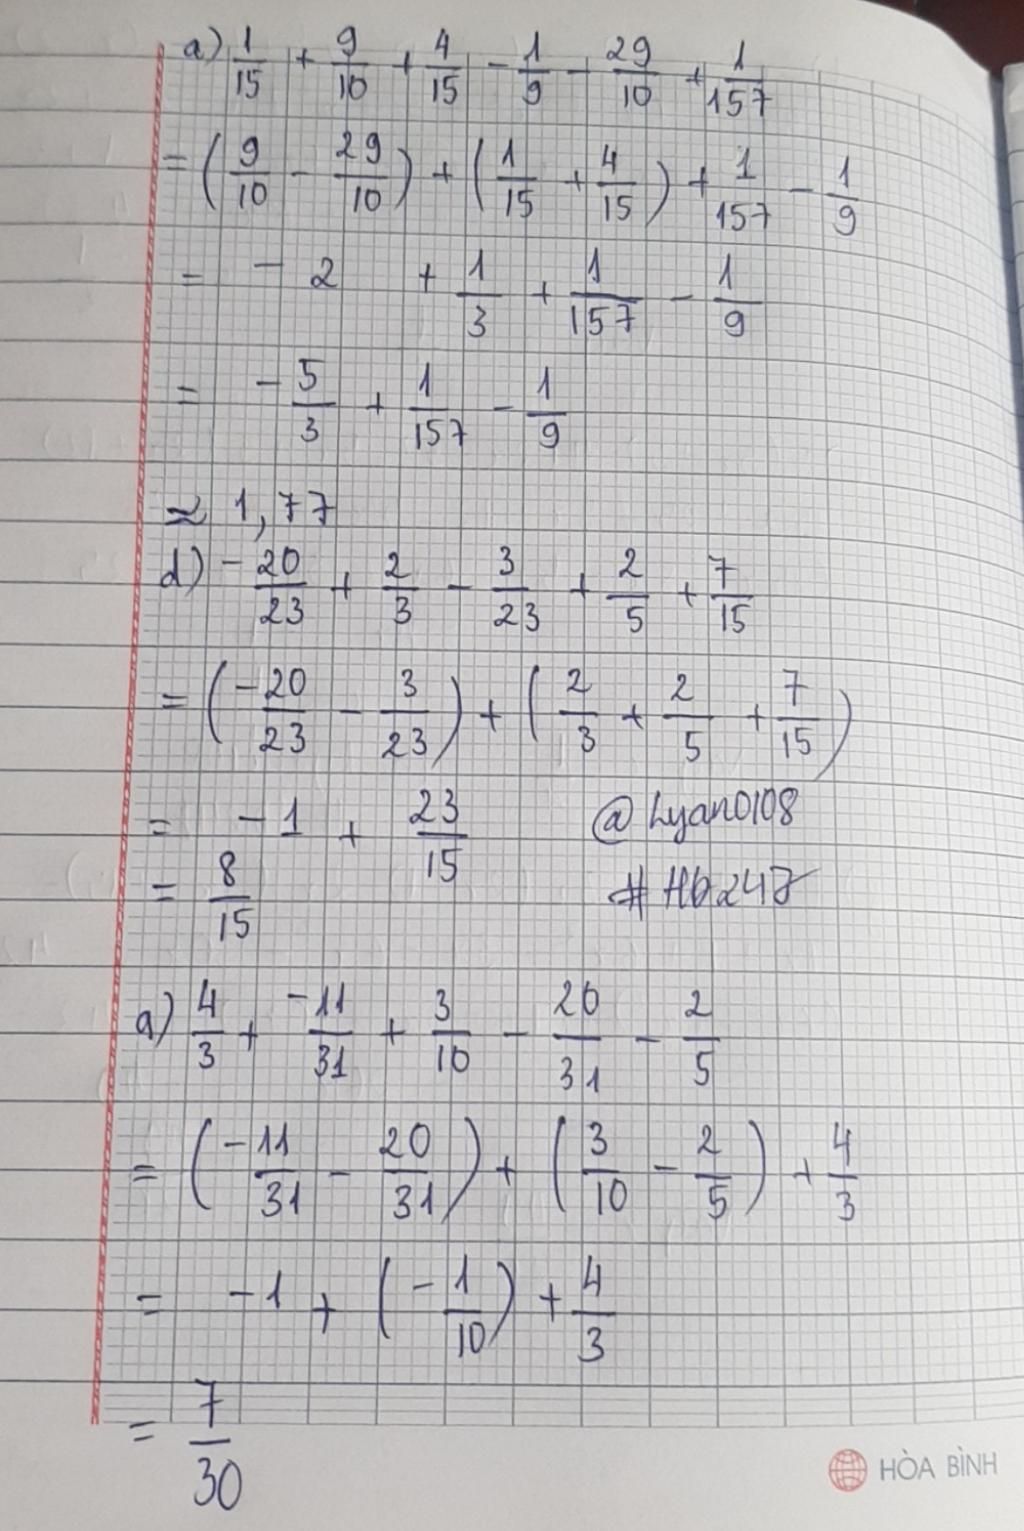 a) 1/15 + 9/10 + 4/15 - 1/9 - 29/10 + 1/157
= (9/10 - 29/10) + (1/15 + 4/15) + 1/157 - 1/9
= - 2 + 1/3 + 1/157 - 1/9
= - 5/3 + 1/157 - 1/9
≈ 1,77
d) -20/23 + 2/3 - 3/23 + 2/5 + 7/15
= (-20/23 - 3/23) + (2/3 + 2/5 + 7/15)
= -1 + 23/15 @Lyan0108
= 8/15 #Hb247
a) 4/3 + -11/31 + 3/10 - 20/31 - 2/5
= (-11/31 - 20/31) + (3/10 - 2/5) + 4/3
= -1 + (-1/10) + 4/3
= 7/30
HÒA BÌNH